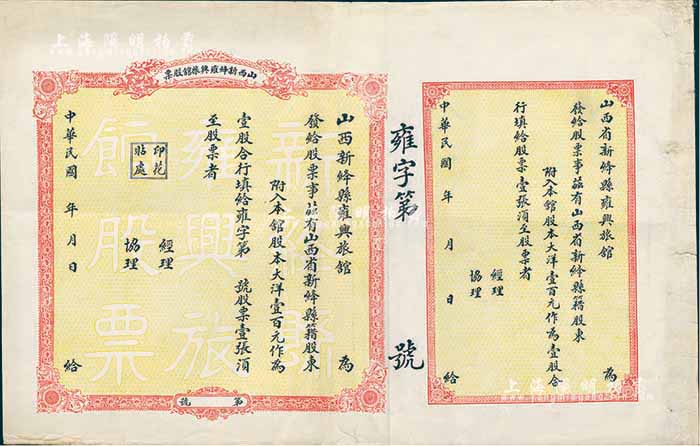 上海陽明拍賣
山西新絳雍興旅館股票
山西新絳縣雍興旅館 為
發給股票事茲有山西省新絳縣籍股東
附入本館股本大洋壹百元作為
壹股合行填給雍字第 號股票壹張須
至股票者
經理
協理
印花
貼處
中華民國 年 月 日 給
第 號
新絳縣
雍興旅
館股票
雍字第 號
山西省新絳縣雍興旅館 為
發給股票事茲有山西省新絳縣籍股東
附入本館股本大洋壹百元作為壹股合
行填給股票壹張須至股票者
經理
協理
中華民國 年 月 日 給
上海陽明拍賣